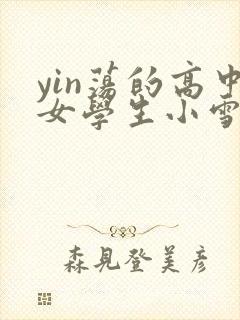 yin蕩的高中
女學生小雪
森見登美彥